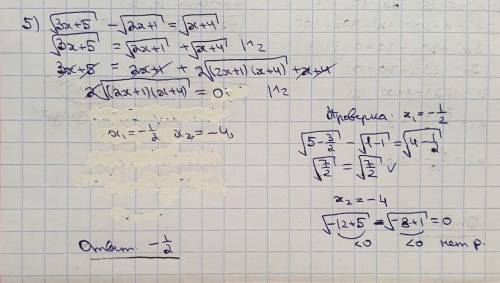 5) √(3x+5) - √(2x+1) = √(x+4)
√(3x+5) = √(2x+1) + √(x+4) |^2
3x+5 = 2x+1 + 2√((2x+1)(x+4)) + x+4
2√((2x+1)(x+4)) = 0 |^2
x₁ = -1/2 x₂ = -4,
Ответ: -1/2
Проверка: x₁ = -1/2
√(5-3/2) - √(1-1) = √(4-1/2)
√(7/2) = √(7/2) ✓
x₂ = -4
√(-12+5) = √(-8+1) = 0
<0 <0 нет р.